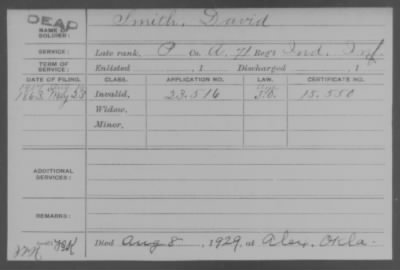 DEAD
NAME OF SOLDIER: Smith, David
SERVICE: Late rank, P Co. A, 71 Reg't Ind. Inf.
TERM OF SERVICE: Enlisted , 1 Discharged , 1
DATE OF FILING. CLASS. APPLICATION NO. LAW. CERTIFICATE NO.
1863, May 23 Invalid, 23.516 15.550
Widow,
Minor,
ADDITIONAL SERVICES:
REMARKS:
Died Aug 8, 1929, at Alex, Okla.